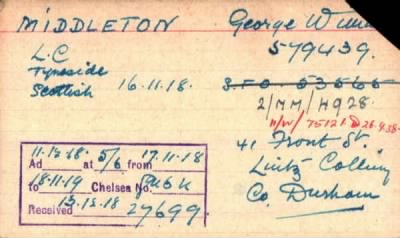 MIDDLETON George Willia
579439.
L.C
Tyneside
Scottish 16.11.18.
2/MM/H928.
11/W/75121 D 26.9.38.
41 Front St.
Lintz Colliery
Co. Durham
11.12.18. 5/6 17.11.18
Ad at from
18.11.19
to Chelsea No.
13.12.18
Received 27699